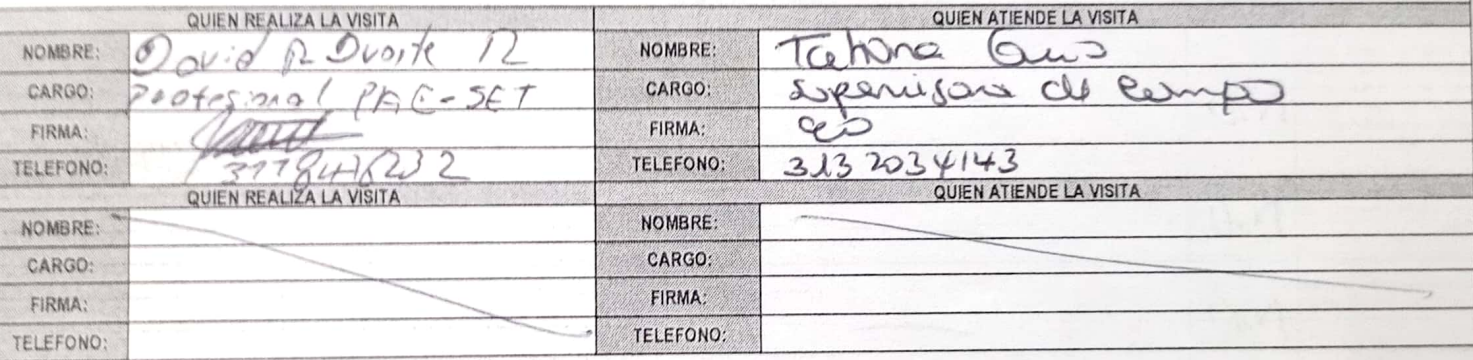 QUIEN REALIZA LA VISITA QUIEN ATIENDE LA VISITA
NOMBRE: David R Duarte R NOMBRE: Tatiana
CARGO: Profesional PAE-SET CARGO: Supervisora de Campo
FIRMA: FIRMA:
TELEFONO: TELEFONO: 313 2034143
QUIEN REALIZA LA VISITA QUIEN ATIENDE LA VISITA
NOMBRE: NOMBRE:
CARGO: CARGO:
FIRMA: FIRMA:
TELEFONO: TELEFONO: